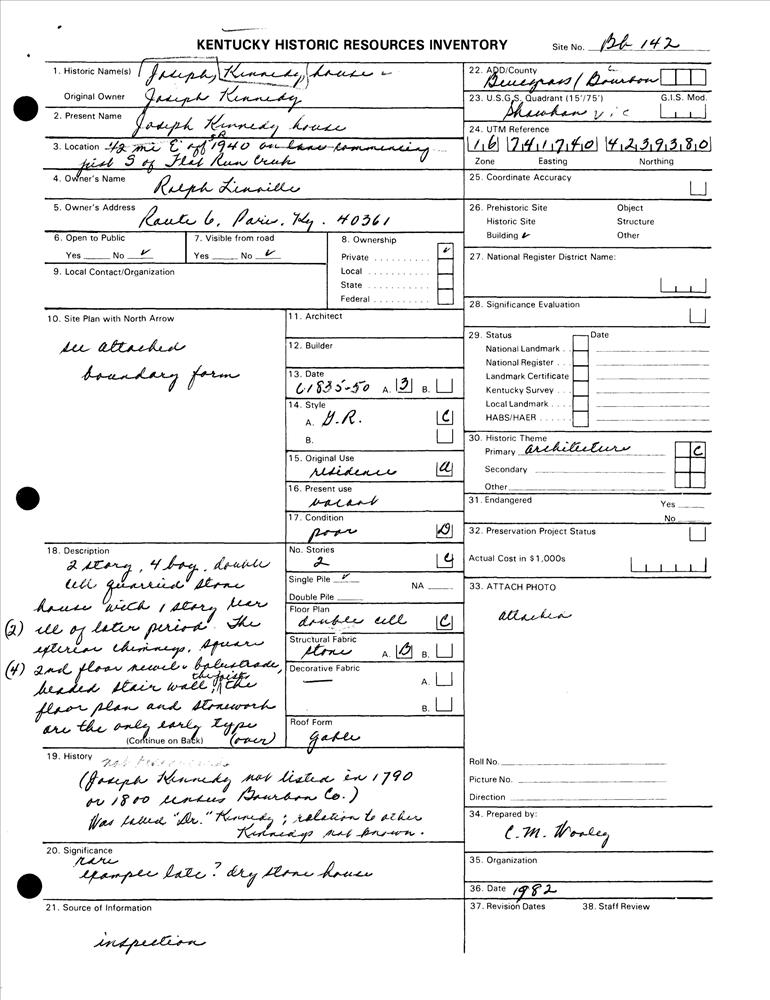 KENTUCKY HISTORIC RESOURCES INVENTORY
Site No. Bb 142
1. Historic Name(s) Joseph Kennedy house
Original Owner Joseph Kennedy
2. Present Name
Joseph Kennedy house
3. Location .42 mi E off 1940 on lane commencing
just S of Flat Run Creek
4. Owner's Name
Ralph Linville
5. Owner's Address
Route 6, Paris, Ky. 40361
6. Open to Public
Yes No ✓
7. Visible from road
Yes No ✓
8. Ownership
Private .......... ✓
Local ..........
State ..........
Federal ..........
9. Local Contact/Organization
10. Site Plan with North Arrow
see attached
boundary form
11. Architect
12. Builder
13. Date
c1835-50 A. 3 B.
14. Style
A. G.R. C
B.
15. Original Use
residence A
16. Present use
vacant
17. Condition
poor D
18. Description
2 story, 4 bay, double
cell quarried stone
house with 1 story rear
(2) ell of later period. The
exterior chimneys, square
(4) 2nd floor newel & balustrade,
beaded stair wall, the joists, the
floor plan and stonework
are the only early type
(Continue on Back) (over)
No. Stories
2 C
Single Pile ✓
NA
Double Pile
Floor Plan
double cell C
Structural Fabric
stone A. D B.
Decorative Fabric
— A.
B.
Roof Form
gable
19. History
(Joseph Kennedy not listed in 1790
or 1800 census Bourbon Co.)
Was called "Dr." Kennedy; relation to other
Kennedys not known.
20. Significance
rare
example late? dry stone house
21. Source of Information
inspection
22. ADD/County
Bluegrass / Bourbon
23. U.S.G.S. Quadrant (15'/75') G.I.S. Mod.
Shawhan
24. UTM Reference
16 741740 4239380
Zone Easting Northing
25. Coordinate Accuracy
26. Prehistoric Site Object
Historic Site Structure
Building ✓ Other
27. National Register District Name:
28. Significance Evaluation
29. Status Date
National Landmark
National Register
Landmark Certificate
Kentucky Survey
Local Landmark
HABS/HAER
30. Historic Theme
Primary architecture C
Secondary
Other
31. Endangered Yes
No
32. Preservation Project Status
Actual Cost in $1,000s
33. ATTACH PHOTO
attached
Roll No.
Picture No.
Direction
34. Prepared by:
C.M. Wooley
35. Organization
36. Date 1982
37. Revision Dates 38. Staff Review